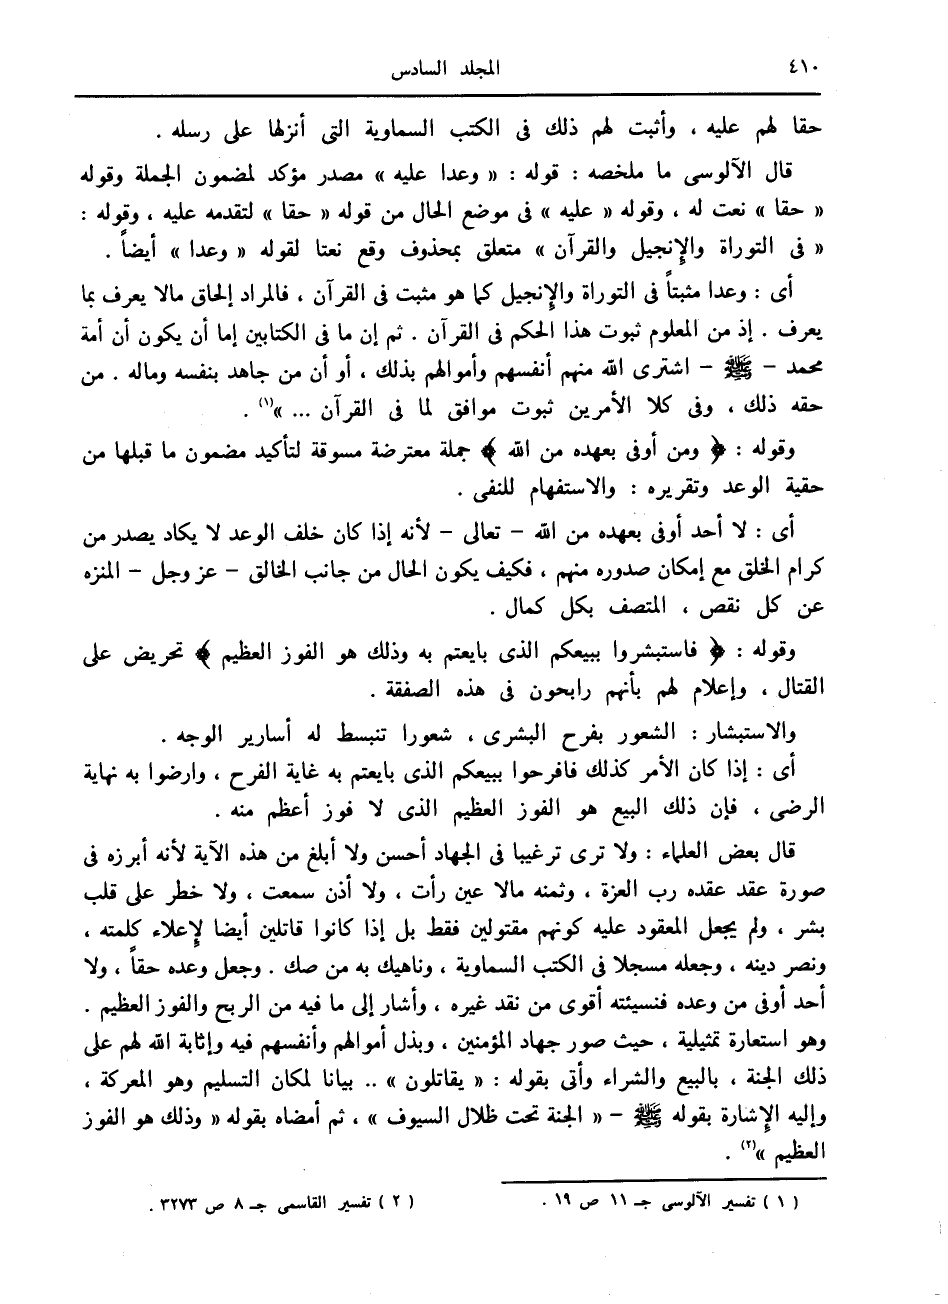 ٤١٠
المجلد السادس
حقا لهم عليه ، وأثبت لهم ذلك فى الكتب السماوية التى أنزلها على رسله .
قال الآلوسى ما ملخصه : قوله : « وعدا عليه » مصدر مؤكد لمضمون الجملة وقوله
« حقا » نعت له ، وقوله « عليه » فى موضع الحال من قوله « حقا » لتقدمه عليه ، وقوله :
« فى التوراة والإنجيل والقرآن » متعلق بمحذوف وقع نعتا لقوله « وعدا » أيضاً .
أى : وعدا مثبتاً فى التوراة والإنجيل كما هو مثبت فى القرآن ، فالمراد إلحاق مالا يعرف بما
يعرف . إذ من المعلوم ثبوت هذا الحكم فى القرآن . ثم إن ما فى الكتابين إما أن يكون أن أمة
محمد – ﷺ – اشترى الله منهم أنفسهم وأموالهم بذلك ، أو أن من جاهد بنفسه وماله . من
حقه ذلك ، وفى كلا الأمرين ثبوت موافق لما فى القرآن ... »(١) .
وقوله : ﴿ ومن أوفى بعهده من الله ﴾ جملة معترضة مسوقة لتأكيد مضمون ما قبلها من
حقية الوعد وتقريره : والاستفهام للنفى .
أى : لا أحد أوفى بعهده من الله – تعالى – لأنه إذا كان خلف الوعد لا يكاد يصدر من
كرام الخلق مع إمكان صدوره منهم ، فكيف يكون الحال من جانب الخالق – عز وجل – المنزه
عن كل نقص ، المتصف بكل كمال .
وقوله : ﴿ فاستبشروا ببيعكم الذى بايعتم به وذلك هو الفوز العظيم ﴾ تحريض على
القتال ، وإعلام لهم بأنهم رابحون فى هذه الصفقة .
والاستبشار : الشعور بفرح البشرى ، شعورا تنبسط له أسارير الوجه .
أى : إذا كان الأمر كذلك فافرحوا ببيعكم الذى بايعتم به غاية الفرح ، وارضوا به نهاية
الرضى ، فإن ذلك البيع هو الفوز العظيم الذى لا فوز أعظم منه .
قال بعض العلماء : ولا ترى ترغيبا فى الجهاد أحسن ولا أبلغ من هذه الآية لأنه أبرزه فى
صورة عقد عقده رب العزة ، وثمنه مالا عين رأت ، ولا أذن سمعت ، ولا خطر على قلب
بشر ، ولم يجعل المعقود عليه كونهم مقتولين فقط بل إذا كانوا قاتلين أيضا لإعلاء كلمته ،
ونصر دينه ، وجعله مسجلا فى الكتب السماوية ، وناهيك به من صك . وجعل وعده حقاً ، ولا
أحد أوفى من وعده فنسيئته أقوى من نقد غيره ، وأشار إلى ما فيه من الربح والفوز العظيم .
وهو استعارة تمثيلية ، حيث صور جهاد المؤمنين ، وبذل أموالهم وأنفسهم فيه وإثابة الله لهم على
ذلك الجنة ، بالبيع والشراء وأتى بقوله : « يقاتلون » .. بيانا لمكان التسليم وهو المعركة ،
وإليه الإشارة بقوله ﷺ – « الجنة تحت ظلال السيوف » ، ثم أمضاه بقوله « وذلك هو الفوز
العظيم »(٢) .
( ١ ) تفسير الآلوسى جـ ١١ ص ١٩ .
( ٢ ) تفسير القاسمى جـ ٨ ص ٣٢٧٣ .